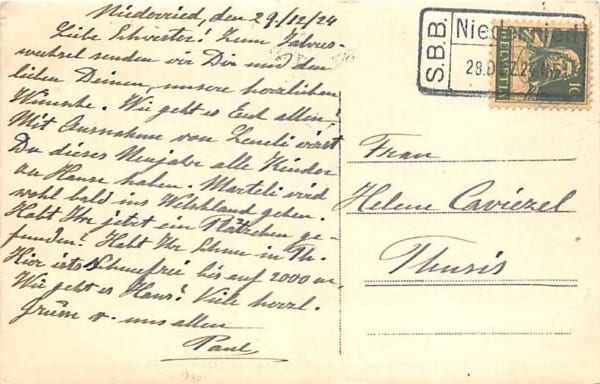 Niederried, den 29./12/24
Liebe Schwester! Zum Jahres-
wechsel senden wir Dir und den
lieben Deinen, unsere herzlichen
Wünsche. Wie geht es Euch allen?
Mit Ausnahme von Leneli wirst
Du dieses Neujahr alle Kinder
zu Hause haben. Marteli wird
wohl bald ins Welschland gehen.
Habt Ihr jetzt ein Plätzchen ge-
funden? Habt Ihr Schnee in Th.
Hier ists Schneefrei bis auf 2000 m,
Wie geht es Hans? Viele herzl.
Grüsse v. uns allen
Paul
S.B.B.
Niederried
HELVETIA
10
Frau
Helene Caviezel
Thusis